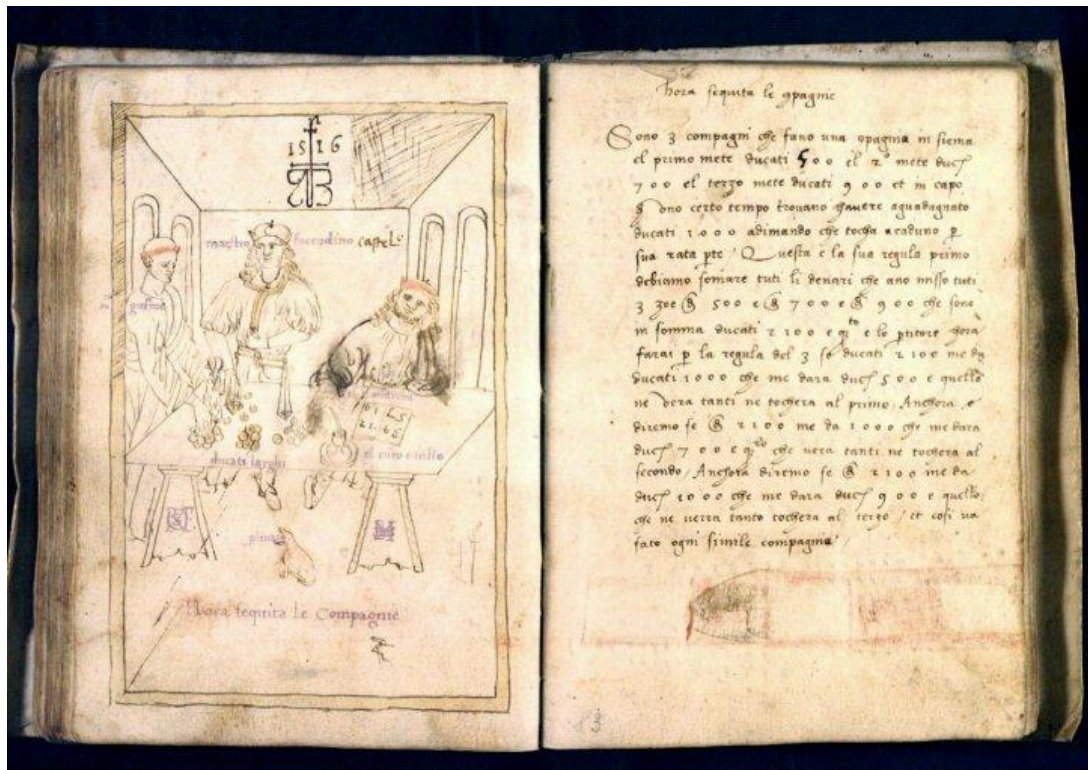 1516
maestro
castel
ducati larghi
el
Hora sequita le Compagnie
Hora sequita le 9pagnie
Sono 3 compagni che fano una 9pagnia in siema
el primo mete ducati 500 el 2º mete ducj
700 el terzo mete ducati 900 et in capo
ono certo tempo trovano havere aguadagnato
ducati 1000 adimando che tocha acaduno p
sua rata pte / Questa e la sua regula primo
debiamo somare tuti li denari che ano misso tuti
3 zoe 500 e 700 e 900 che sono
in somma ducati 2100 e e lo ptitore hora
farai p la regula del 3 se ducati 2100 me da
ducati 1000 che me dara ducj 500 e quello
ne vera tanti ne tochera al primo / Anchora
diremo se 2100 me da 1000 che me dara
ducj 700 e che vera tanti ne tochera al
secondo / Anchora diremo se 2100 me da
ducj 1000 che me dara ducj 900 e quello
che ne verra tanto tochera al terzo / et cosi va
fato ogni simile compagnia
3